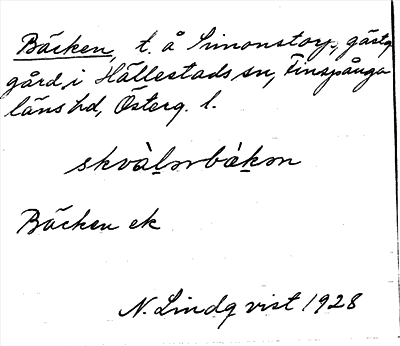 Bäcken, t. å Simonstorp, gästg
gård, i Hällestads sn, Finspånga
läns hd, Österg. l.
skvàlərbàkən
Bäcken ek
N. Lindqvist 1928